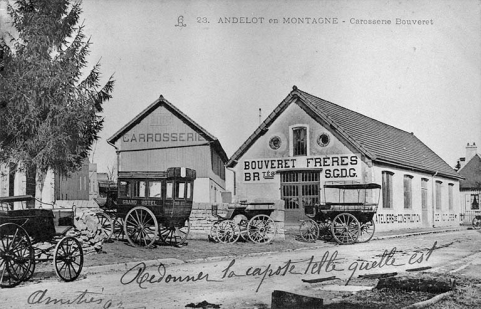 23. ANDELOT en MONTAGNE - Carosserie Bouveret
CARROSSERIE
BOUVERET FRÈRES
BRTÉS S.G.D.G.
GRAND HOTEL
Redonner la capote telle quelle est
Amitiés